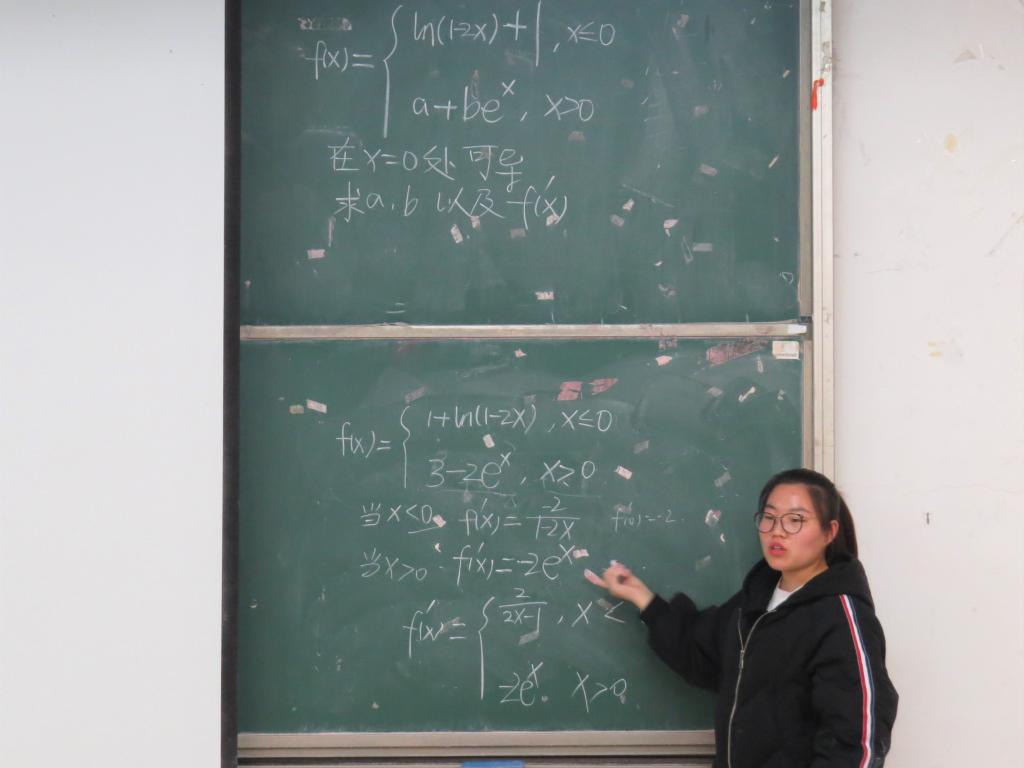 f(x)= { ln(1-2x)+1, x≤0
a+be^x, x>0
在x=0处可导
求a,b 以及 f'(x)
=
f(x)= { 1+ln(1-2x), x≤0
3-2e^x, x>0
当x<0, f'(x)= -2/1-2x f'(0)=-2.
当x>0. f'(x)=-2e^x
f'(x)= { 2/2x-1, x<
-2e^x. x>0